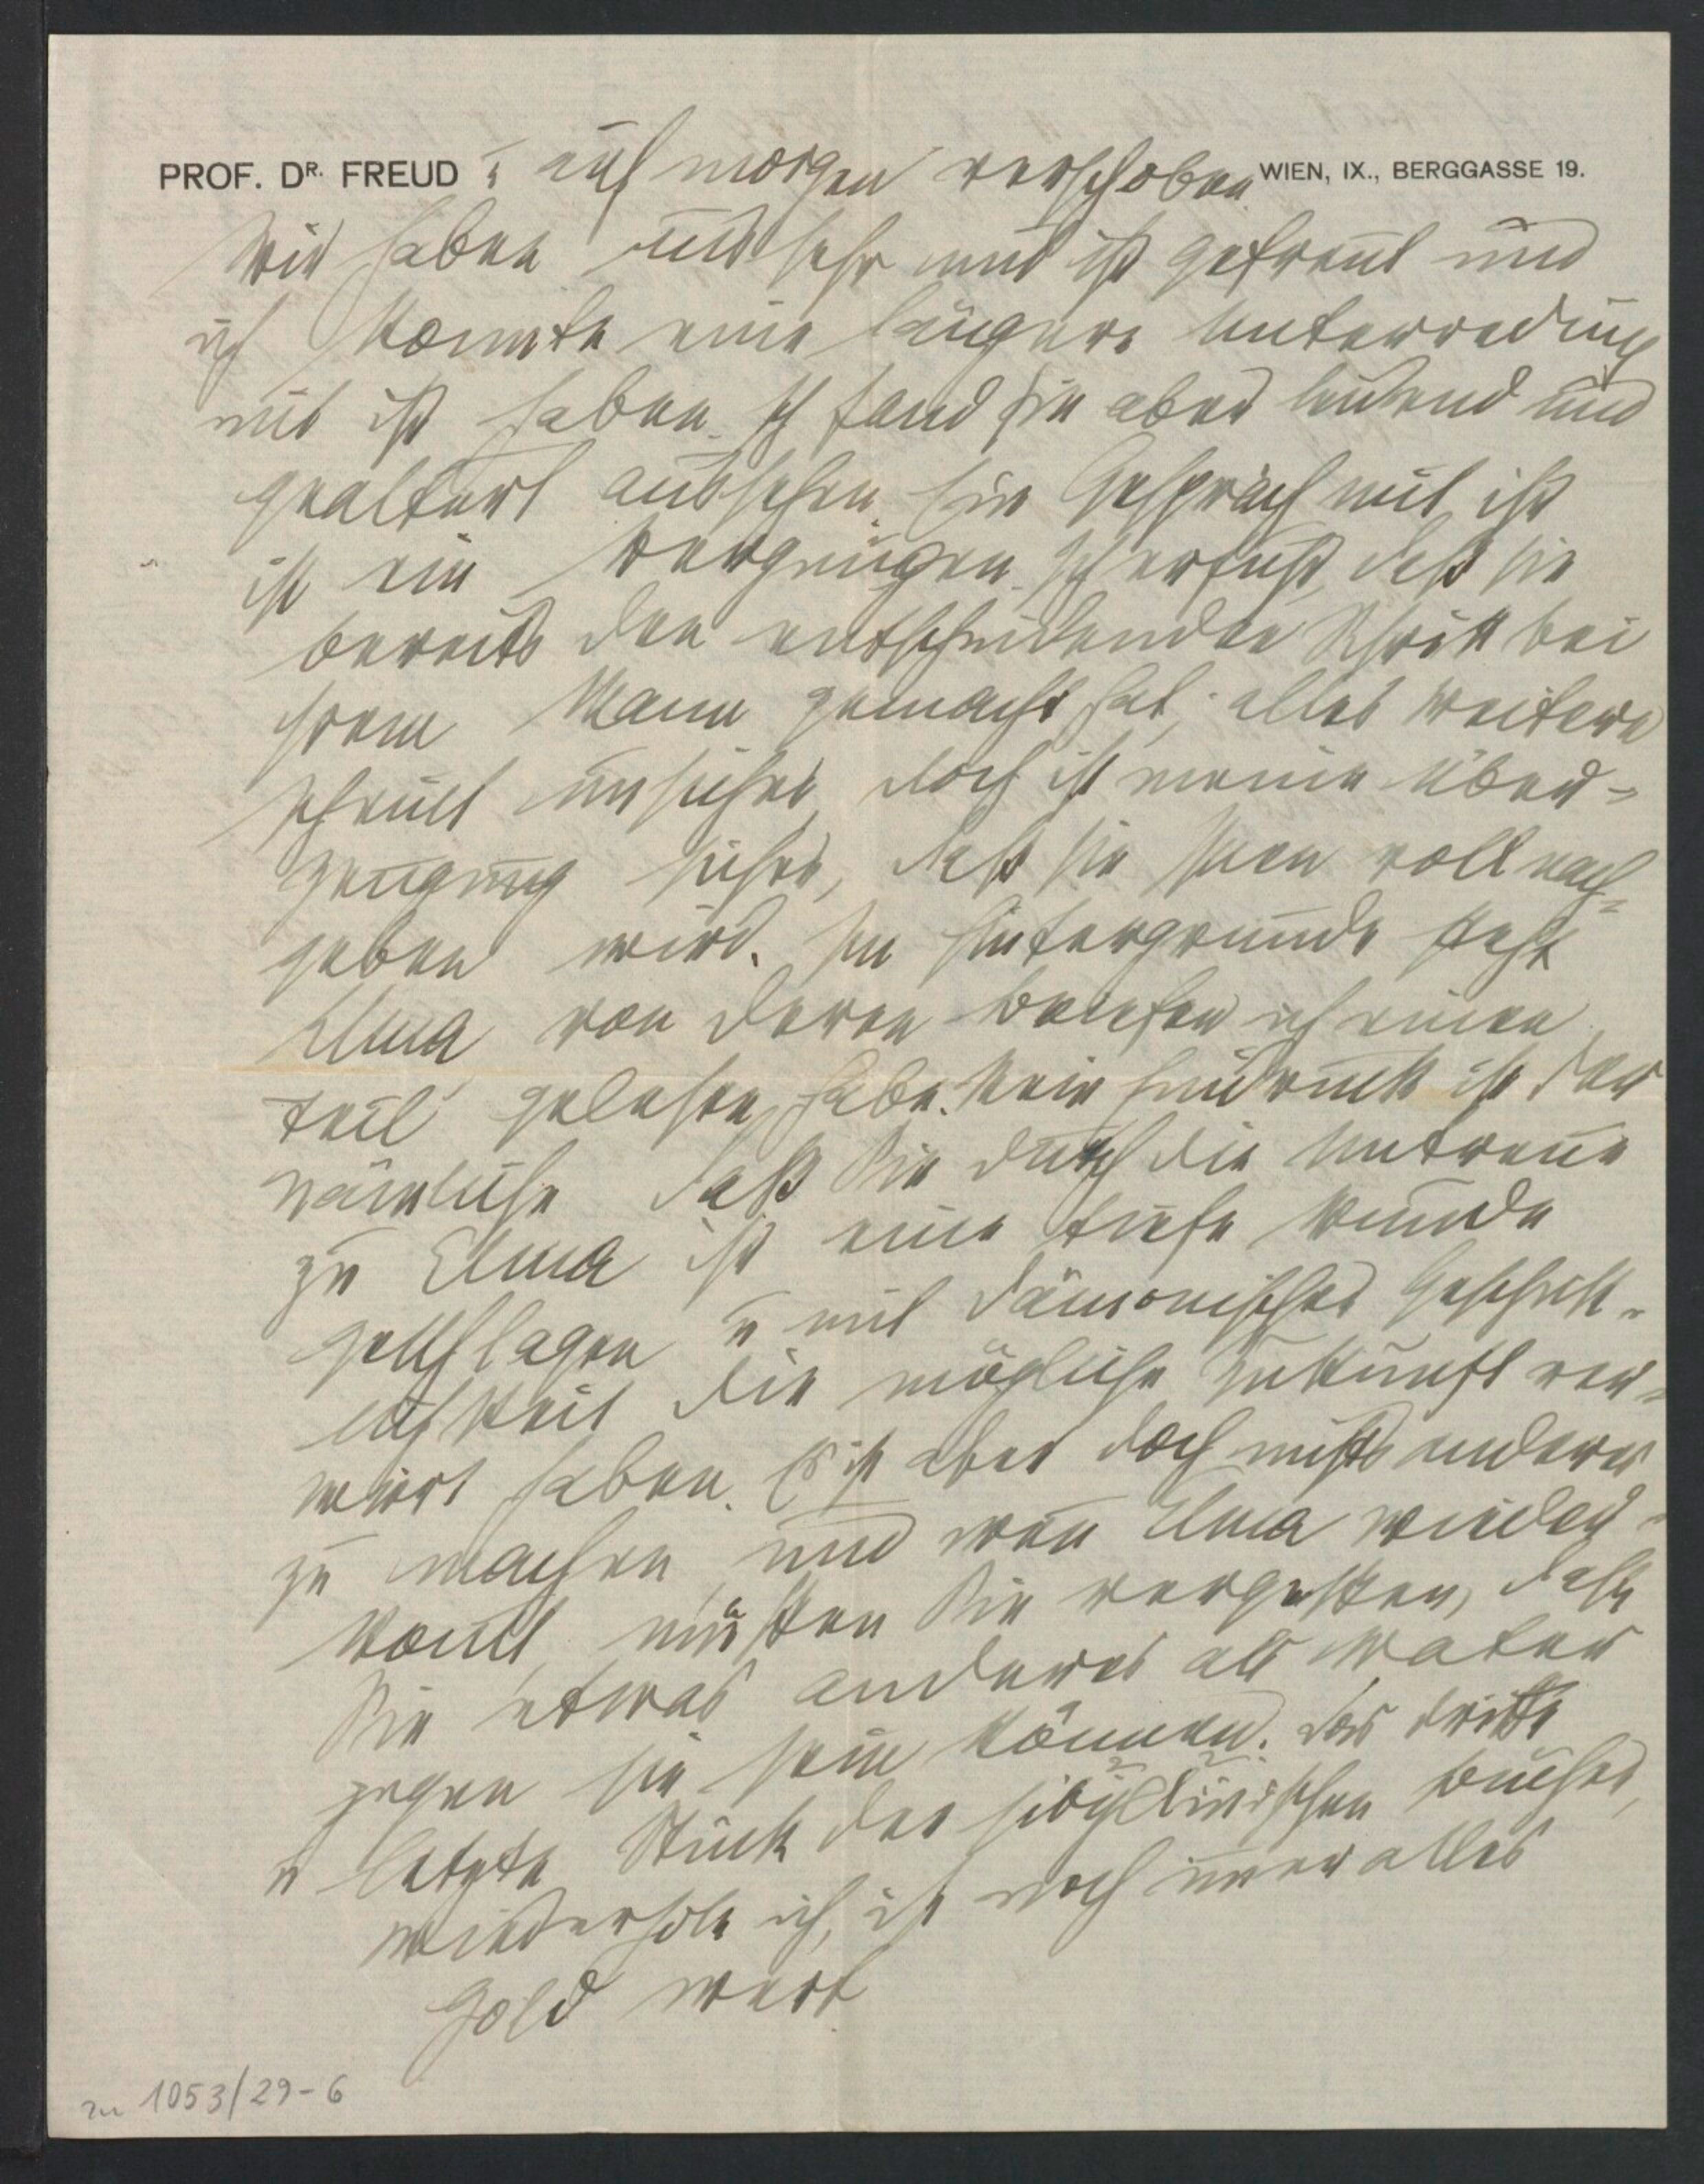 PROF. DR. FREUD u auf morgen verschoben. WIEN, IX., BERGGASSE 19.
Wir haben uns sehr mit ihr gefreut und
ich konnte eine längere Unterredung
mit ihr haben. Ich fand sie aber leidend und
gealtert aussehen. Ein Gespräch mit ihr
ist ein Vergnügen. Ich erfuhr, daß sie
bereits den entscheidenden Schritt bei
ihrem Mann gemacht hat, alles weitere
scheint unsicher, doch ist meine Über-
zeugung sicher, daß sie Ihnen voll nach-
geben wird. Im Hintergrunde steht
Elma, von deren Briefen ich einen
Teil gelesen habe. Mein Eindruck ist der
nämliche, daß Sie durch die Untreue
zu Elma ihr eine tiefe Wunde
geschlagen u mit dämonischer Geschick-
lichkeit die mögliche Zukunft ver-
wirrt haben. Es ist aber doch nichts anderes
zu machen und wenn Elma wieder-
kommt, müßten Sie vergessen, daß
Sie etwas anderes als Vater
gegen sie sein können. Das dritte
u letzte Stück der sibyllinischen Bücher,
wiederhole ich, ist noch immer alles
Gold wert
zu 1053/29-6